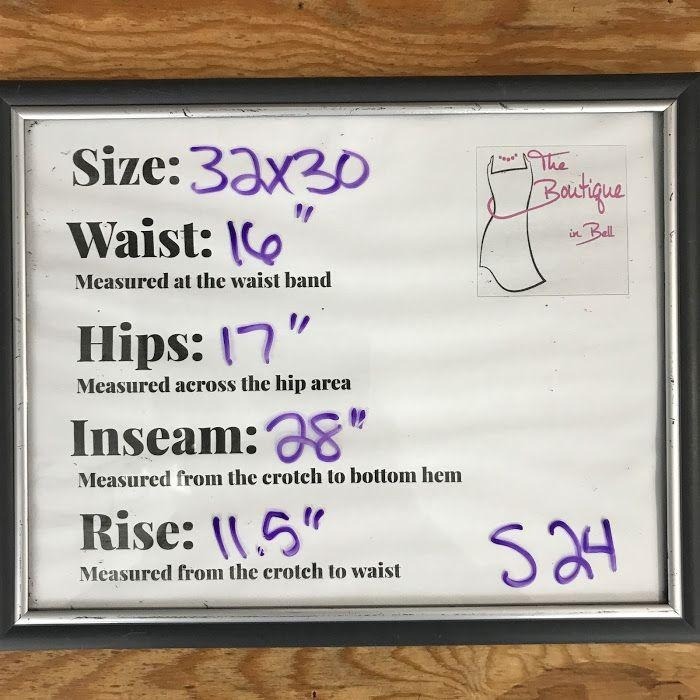 Size: 32x30
Waist: 16"
Measured at the waist band
Hips: 17"
Measured across the hip area
Inseam: 28"
Measured from the crotch to bottom hem
Rise: 11.5"
Measured from the crotch to waist
The
Boutique
in Bell
S24